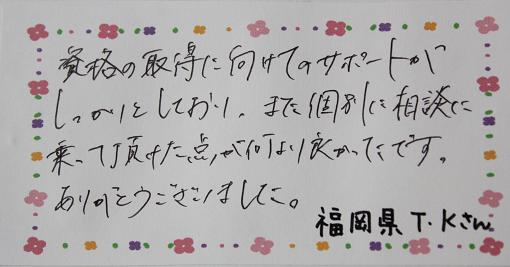 資格の取得に向けてのサポートが
しっかりとしており、また個別に相談に
乗って頂けた点が何より良かったです。
ありがとうございました。
福岡県 T・Kさん